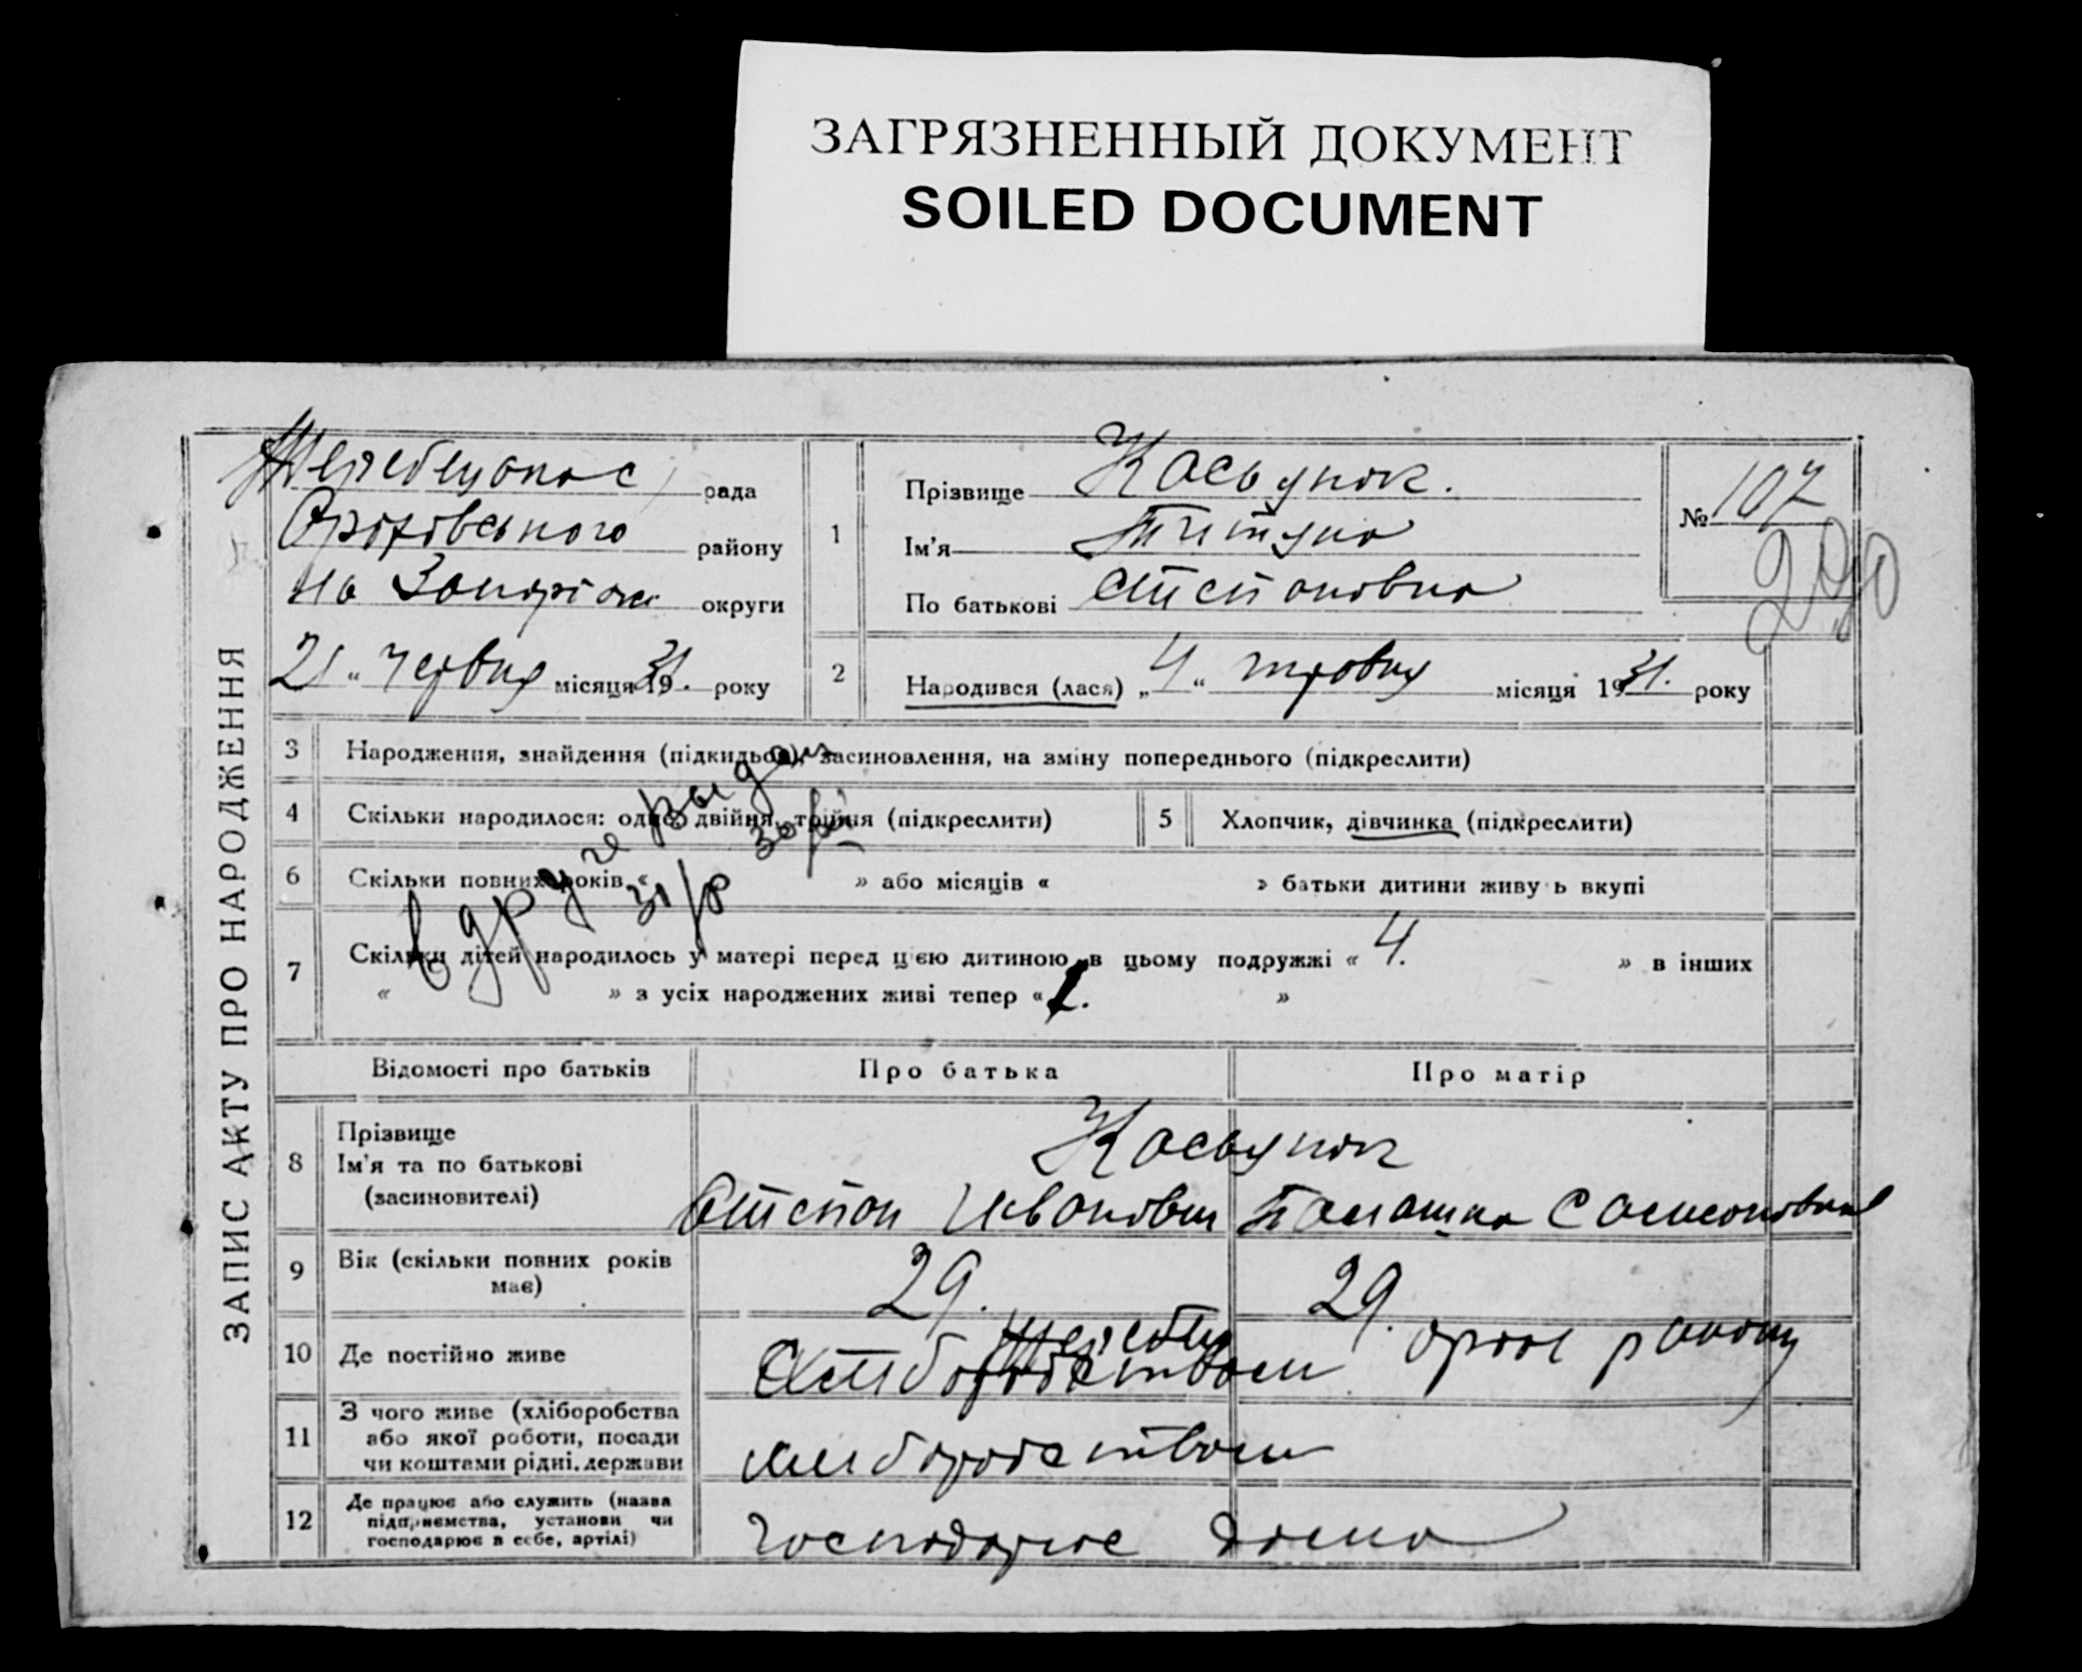 ЗАГРЯЗНЕННЫЙ ДОКУМЕНТ
SOILED DOCUMENT
ЗАПИС АКТУ ПРО НАРОДЖЕННЯ
рада
Оріхівського району
на округи
21 " червня місяця 1931. року
1
Прізвище Касьянюк.
Ім'я
По батькові Степановна
№ 107
290
2
Народився (лася) „4“ травня місяця 1931. року
3 Народження, знайдення (підкидьок), засиновлення, на зміну попереднього (підкреслити)
4 Скільки народилося: одно, двійня, трійня (підкреслити)
5 Хлопчик, дівчинка (підкреслити)
6 Скільки повних років « » або місяців « » батьки дитини живуть вкупі
7 Скільки дітей народилось у матері перед цією дитиною в цьому подружжі « 4. » в інших
« » з усіх народжених живі тепер « 1. »
в друге
31/р
Відомості про батьків
Про батька
Про матір
8 Прізвище
Ім'я та по батькові
(засиновителі)
Касьянюк
Степан Иванович
Самсоновна
9 Вік (скільки повних років
має)
29.
29.
10 Де постійно живе
району
11 З чого живе (хліборобства
або якої роботи, посади
чи коштами рідні, держави
хліборобством
12 Де працює або служить (назва
підприємства, установи чи
господарює в себе, артілі)
господарює дома